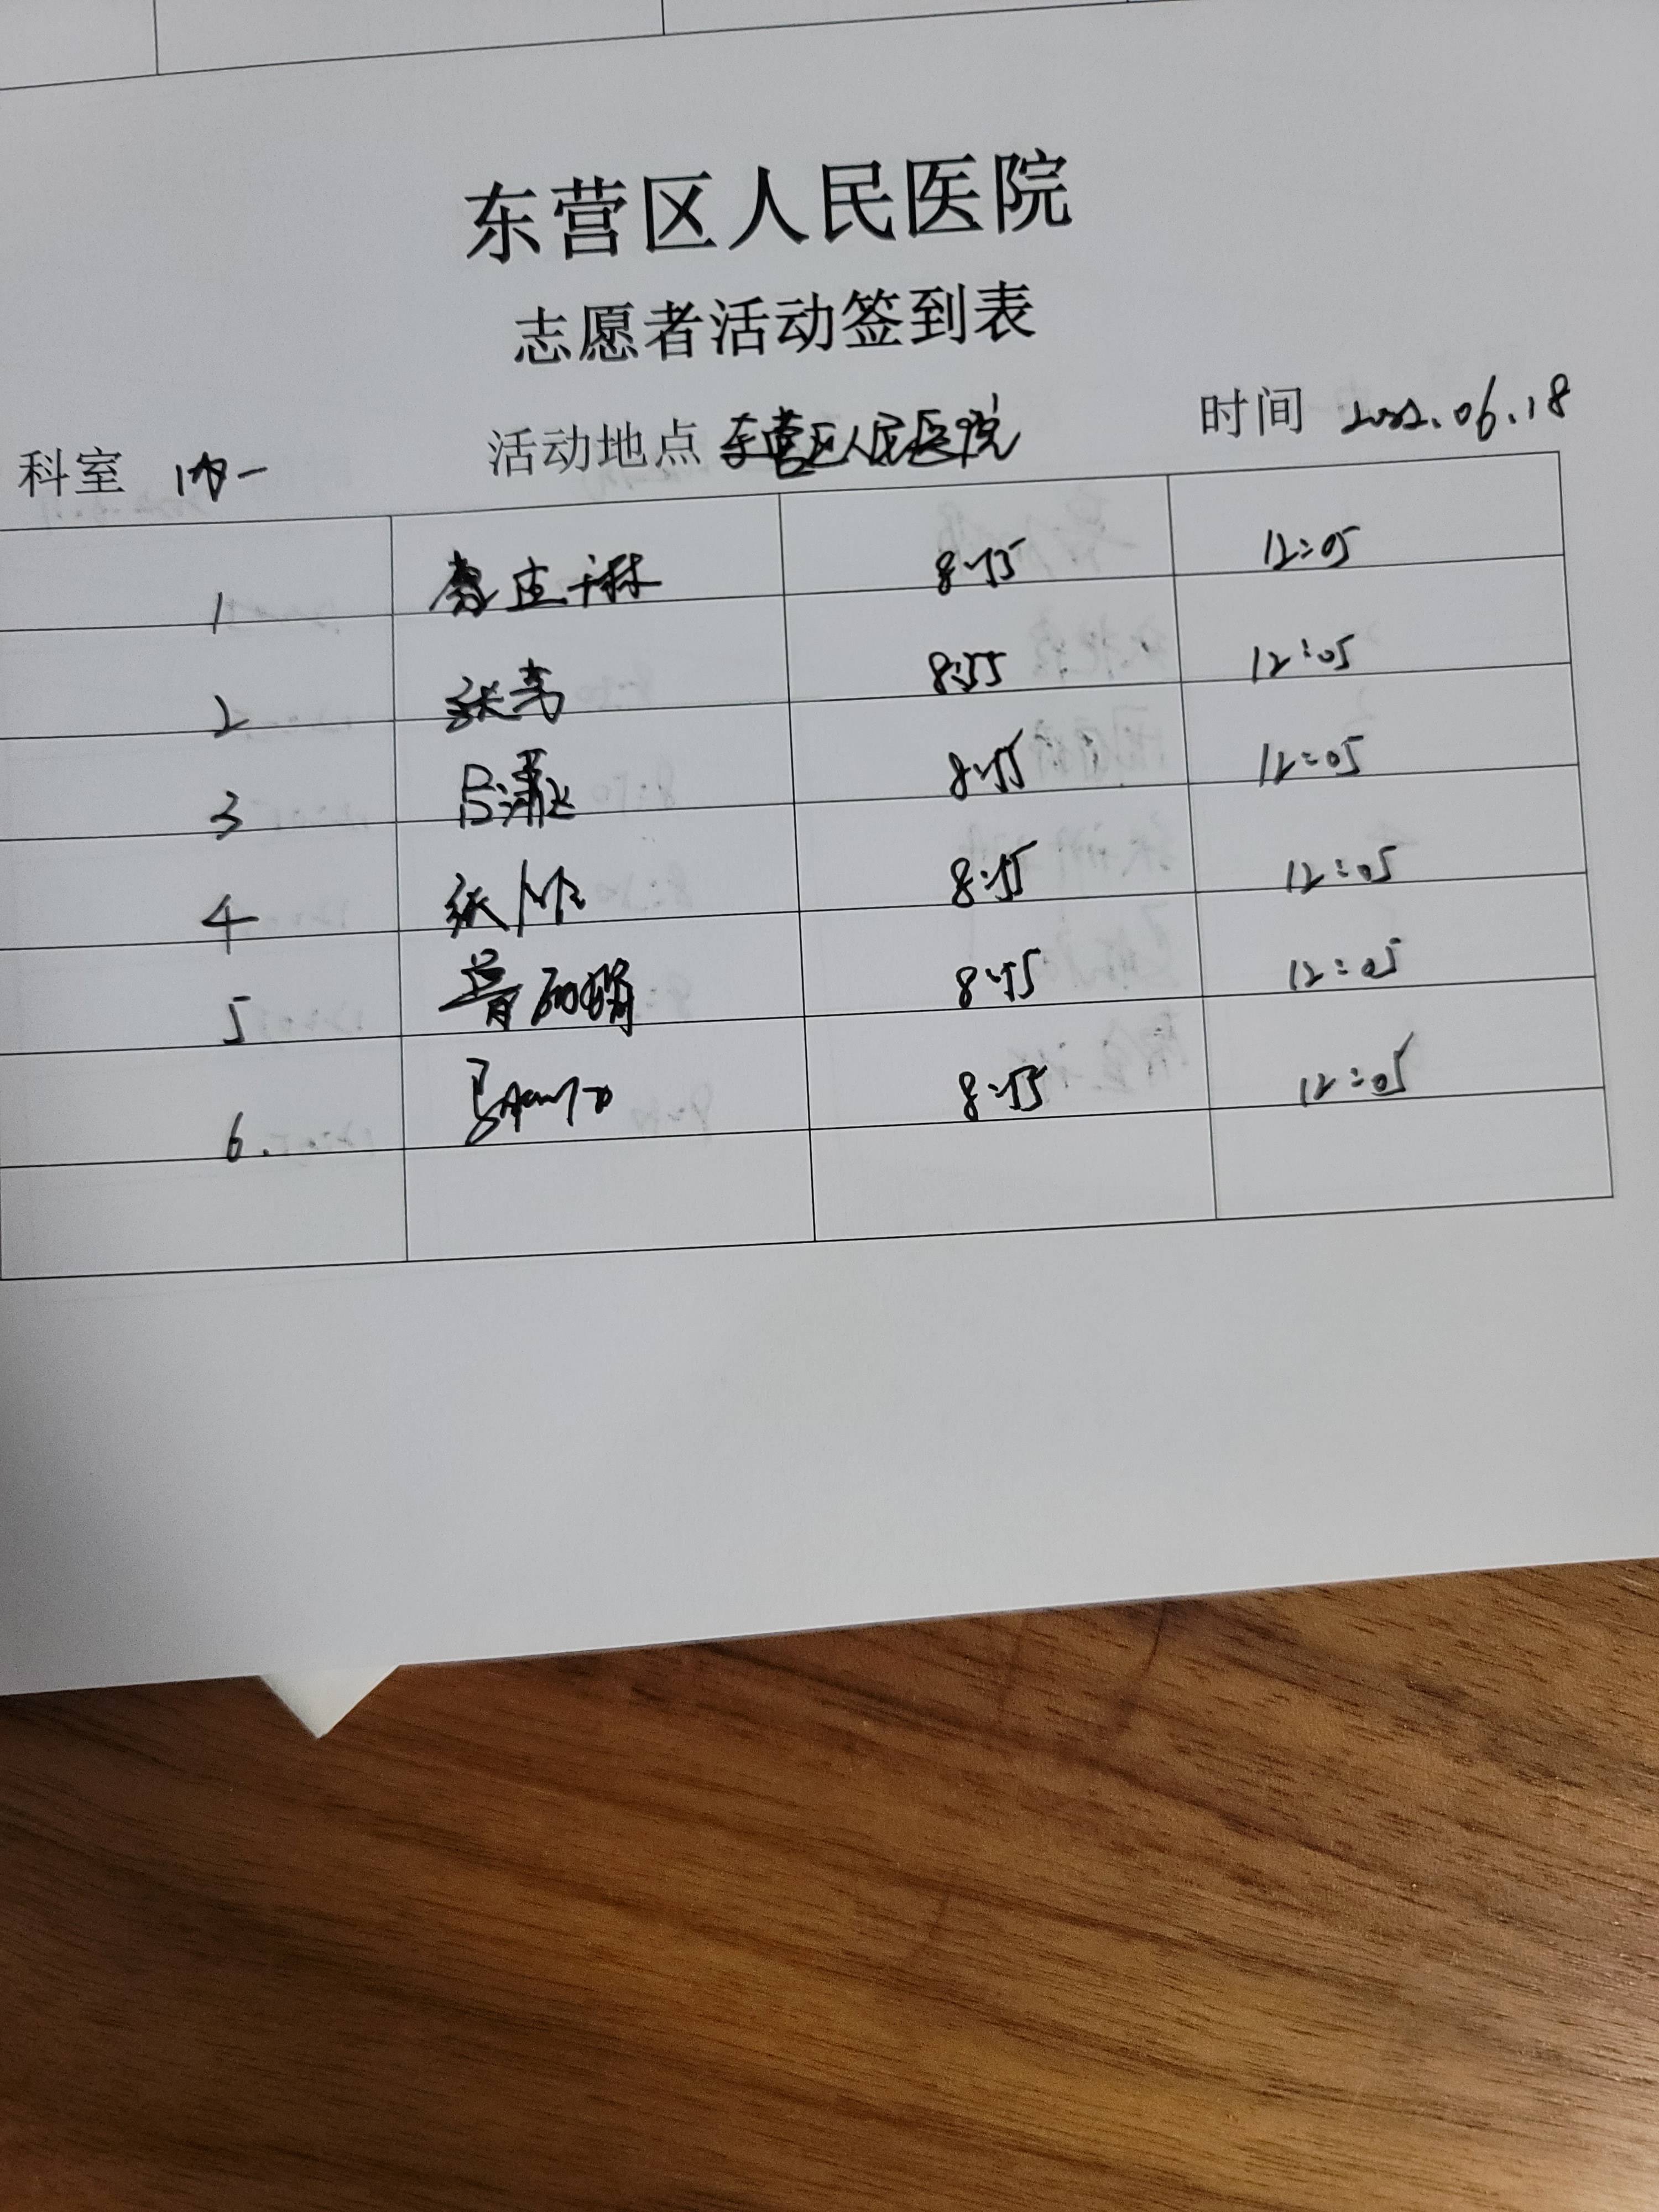 东营区人民医院
志愿者活动签到表
科室 内一 活动地点 东营区人民医院 时间 2022.06.18
1 8:55 12:05
2 张 8:55 12:05
3 吕 8:55 12:05
4 张 8:55 12:05
5 8:55 12:05
6. 8:55 12:05